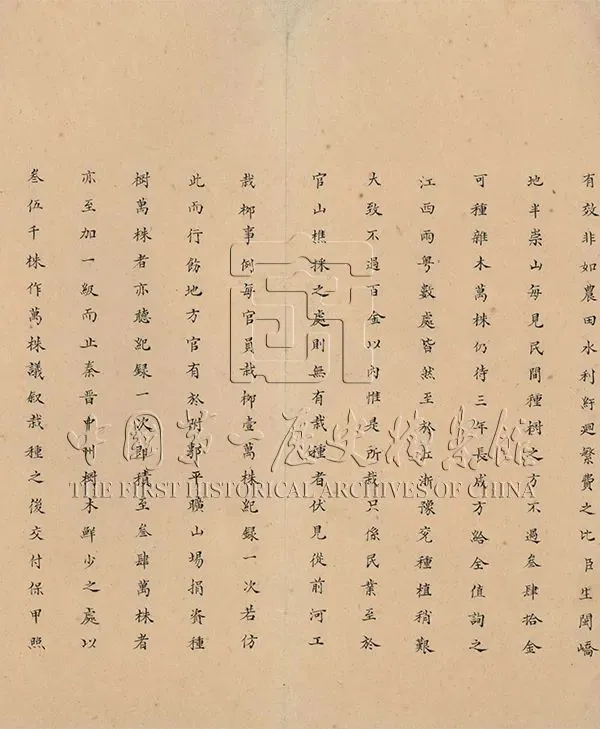 有效非如農田水利紆迴繁費之比臣生閩嶠
地半崇山每見民間種樹之方不過叁肆拾金
可種雜木萬株仍待三年長成方給全值詢之
江西兩粤數處皆然至於江浙豫兖種植稍艱
大致不過百金以內惟是所栽只係民業至於
官山樵採之處則無有栽種者伏見從前河工
栽柳事例每官員栽柳壹萬株紀録一次若仿
此而行飭地方官有於附郭平曠山場捐資種
樹萬株者亦聽紀録一次即積至叁肆萬株者
亦至加一級而止秦晉中州樹木鮮少之處以
叁伍千株作萬株議叙栽種之後交付保甲照
中國第一歷史檔案館
THE FIRST HISTORICAL ARCHIVES OF CHINA